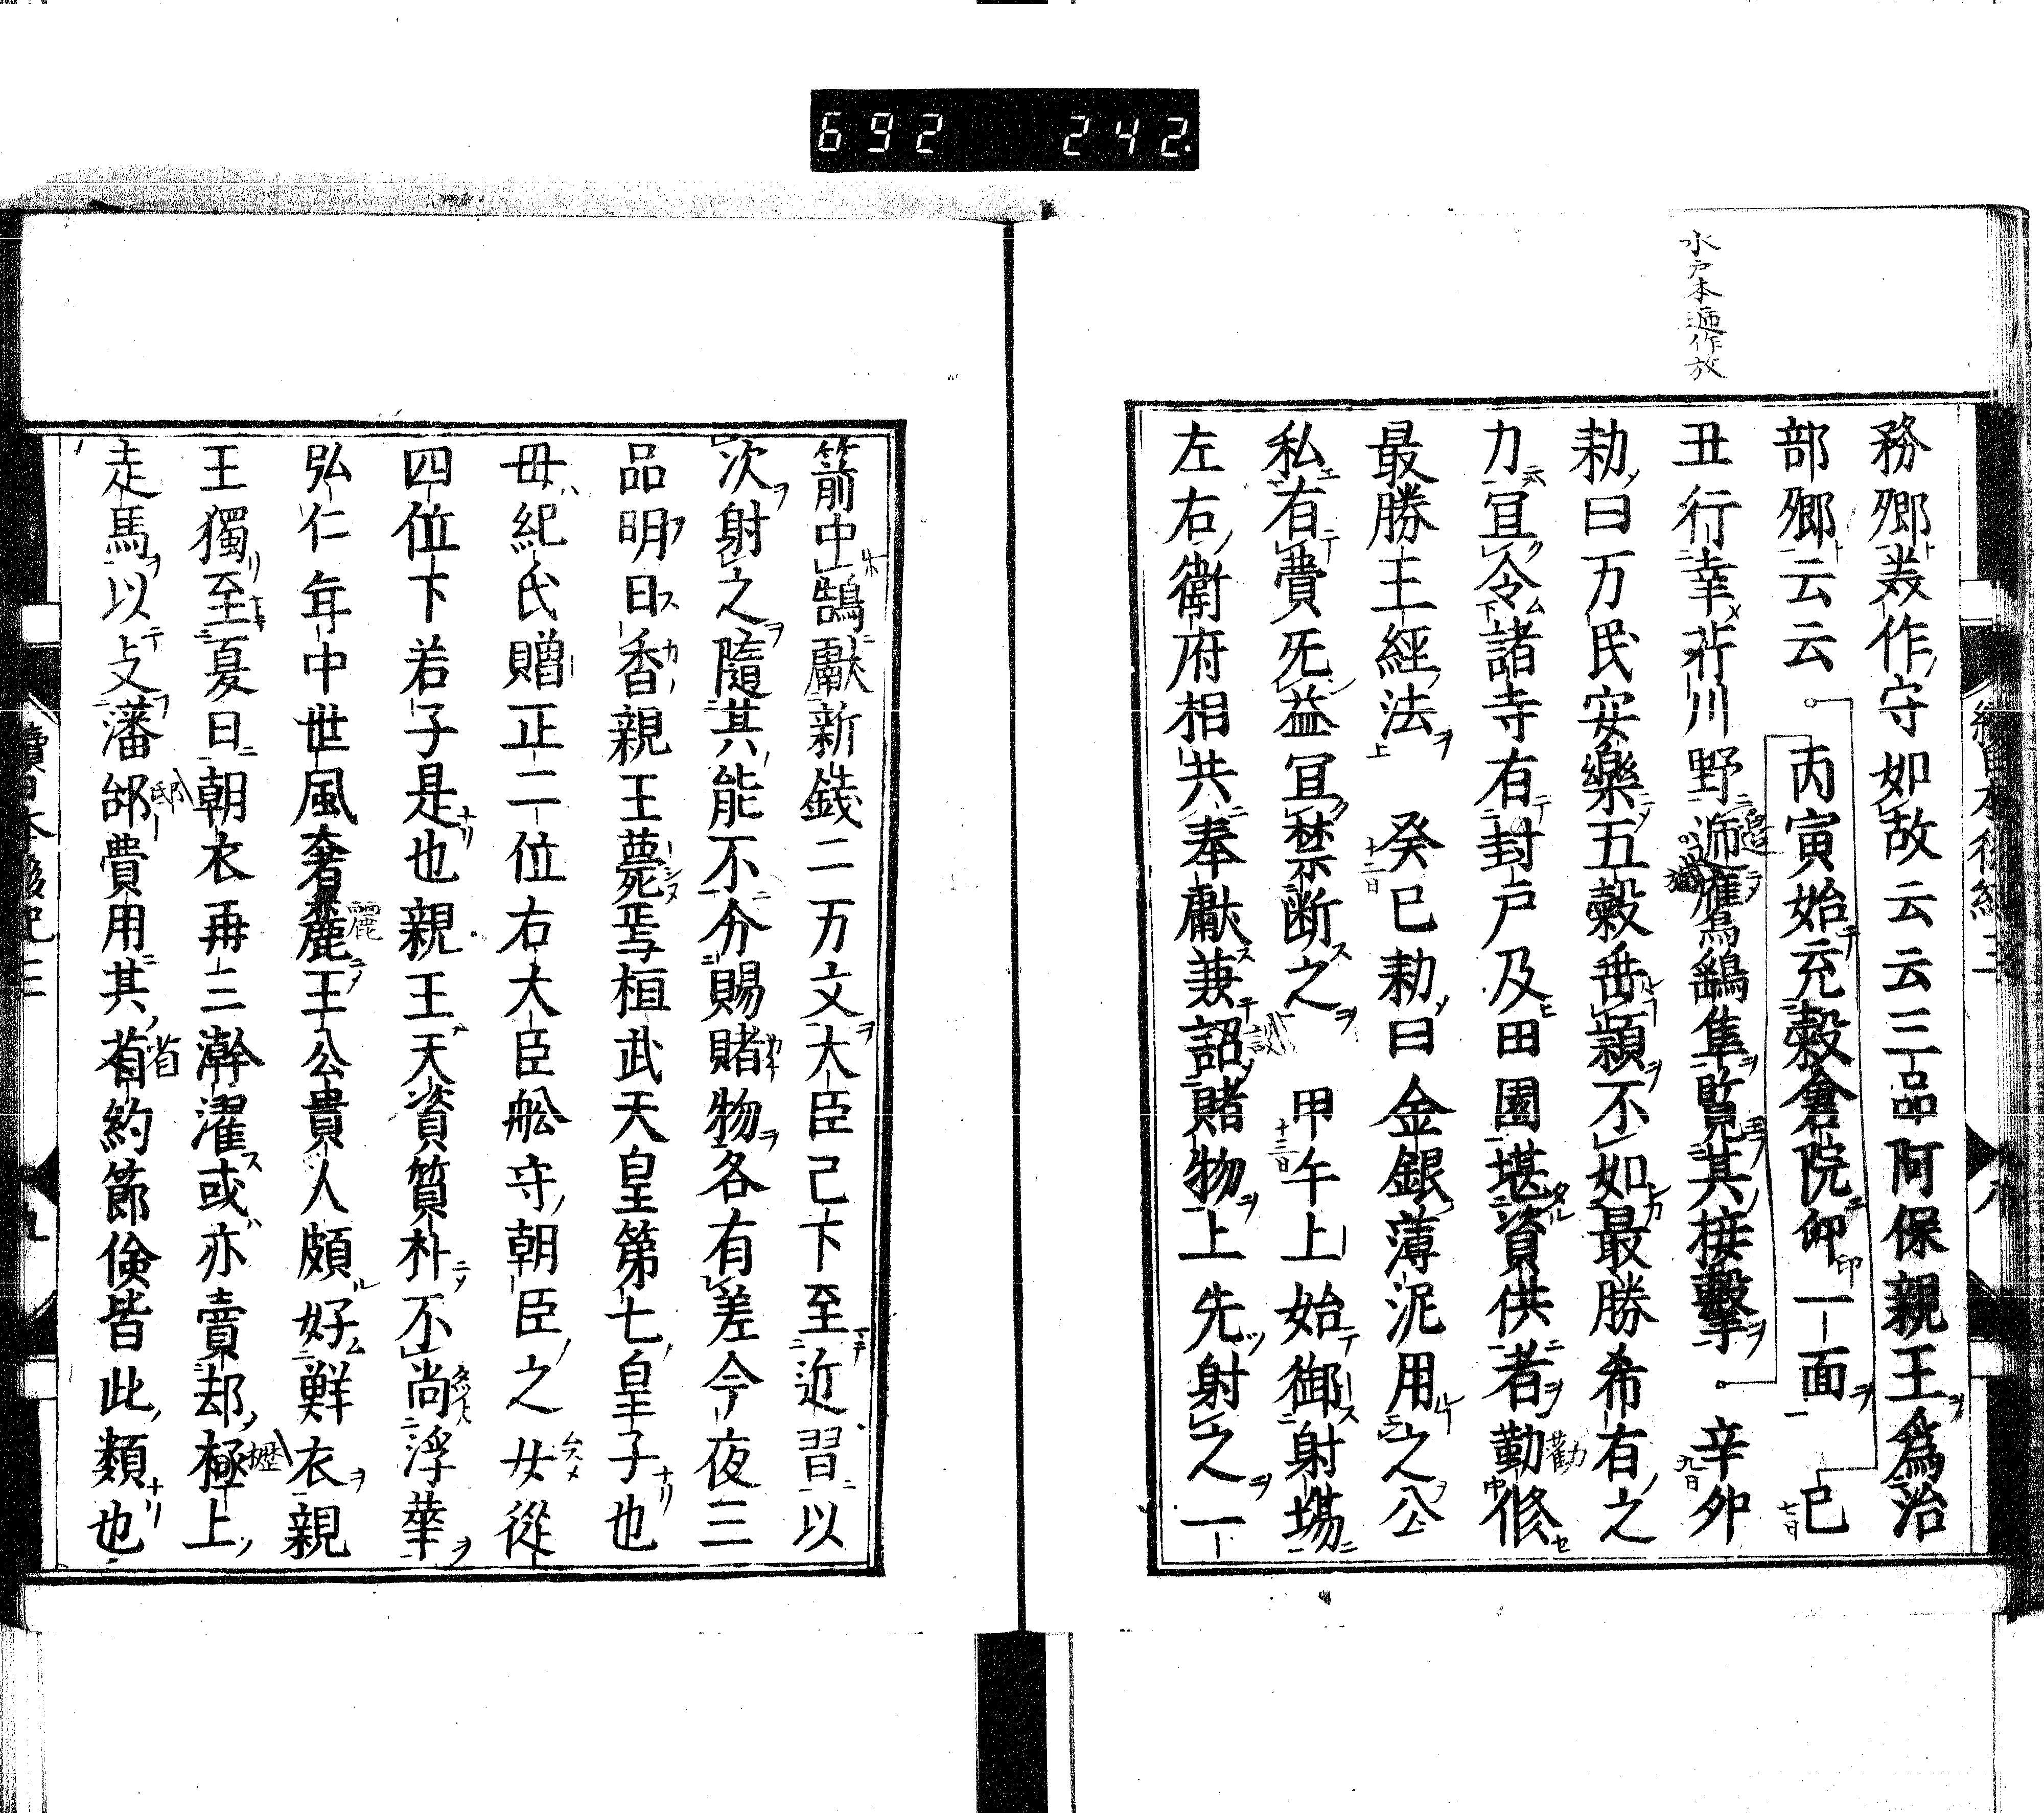 692 242.
水戸本遊作放
務卿兼作守如故云云三品阿保親王為治
部卿云云丙寅始充穀倉院印一面己
丑行幸芹川野遊鷹鷂隼覧其接擊辛卯
勅曰万民安楽五穀垂穎不如最勝希有之
力宜令諸寺有封戸及田園堪資供者勤修
最勝王経法癸巳勅曰金銀薄泥用之公
私有費无益宜禁断之甲午上始御射場
左右衛府相共奉獻兼詔賭物上先射之一
箭中鵠獻新銭二万文大臣已下至近習以
次射之隨其能不分賜賭物各有差今夜三
品明日香親王薨焉桓武天皇第七皇子也
母紀氏贈正二位右大臣舩守朝臣之女従
四位下若子是也親王天資質朴不尚浮華
弘仁年中世風奢麗王公貴人頗好鮮衣親
王獨至夏日朝衣再三澣濯或亦賣却極上
走馬以支藩邸費用其省約節倹皆此類也